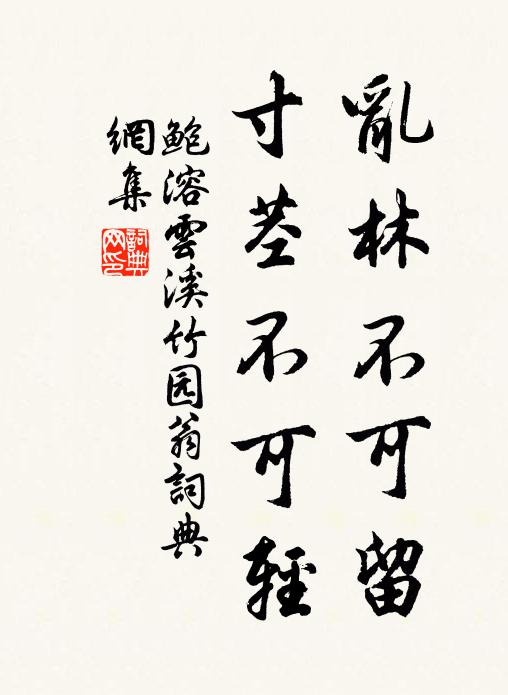 亂林不可留
寸莖不可輕
鲍溶雲溪竹园翁詞典
網集
詞典
网印